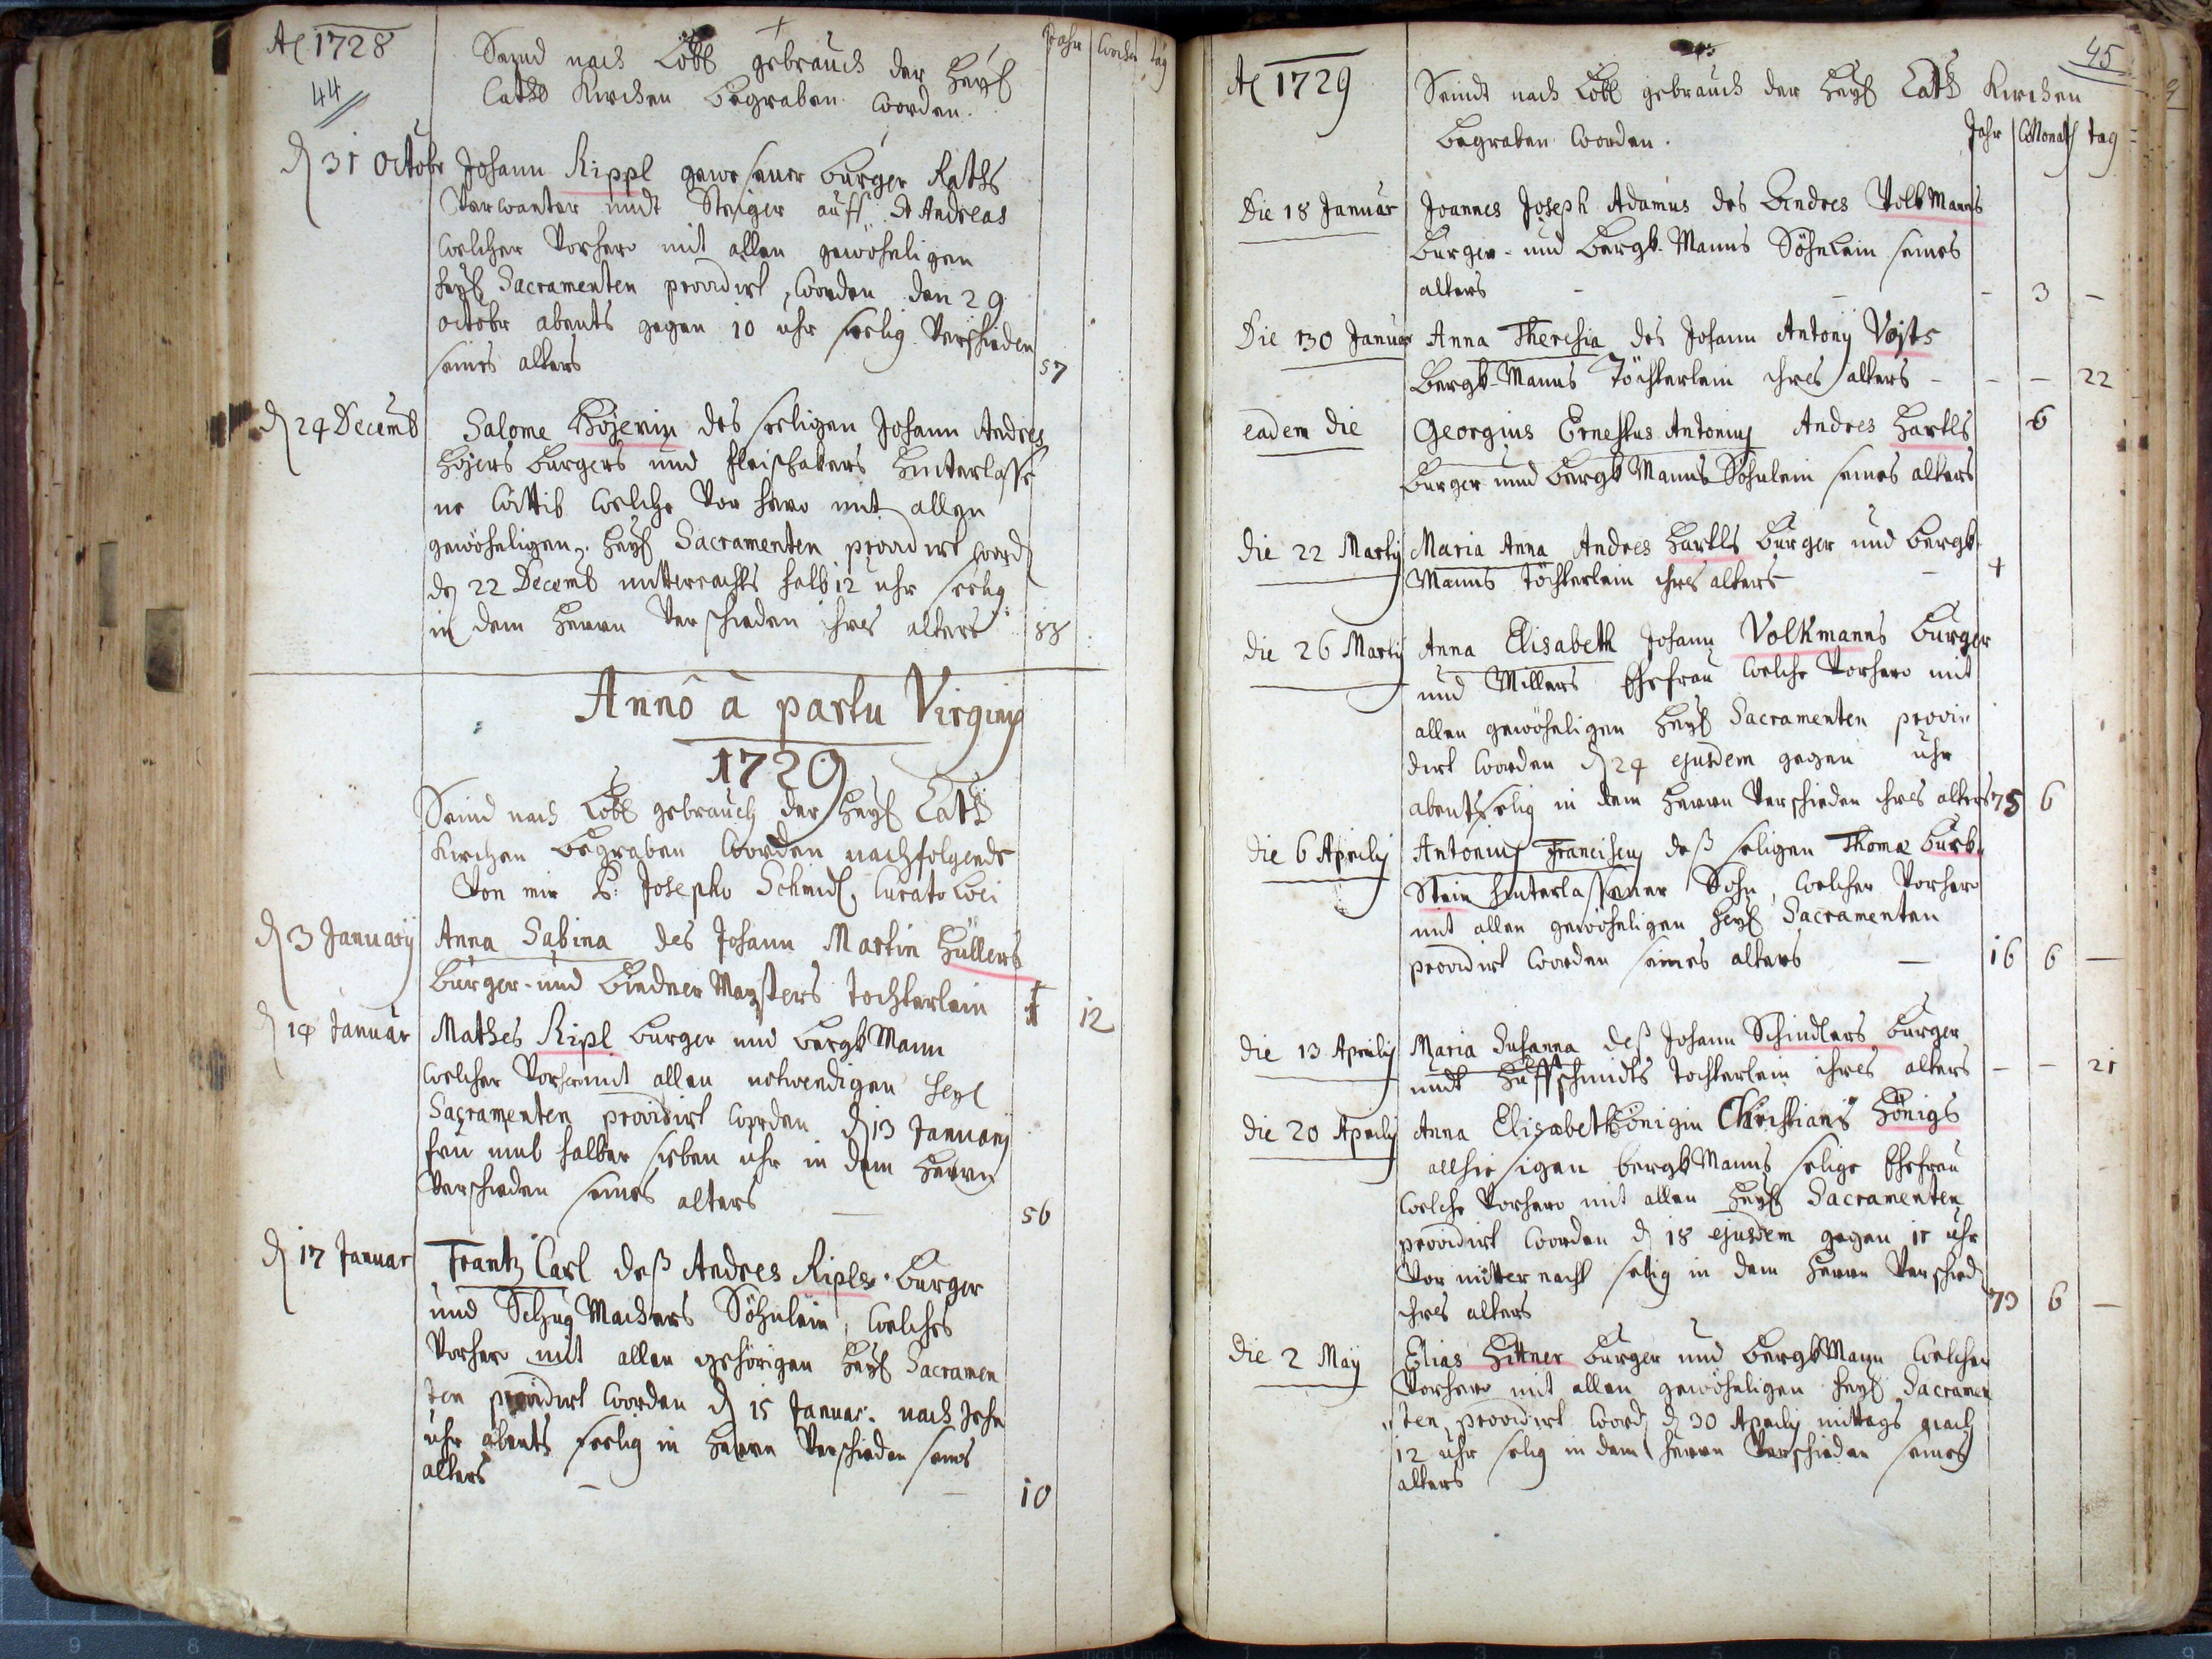 A 1728
44
Seynd nach Löbl gebrauch der Heyl
Jahr Wochen tag
Catho Kirchen begraben worden.
d 31 Octobr Johann Rippl gewesener burger Raths
Verwanter undt Steiger auff St Andreas
welcher Vorhero mit allen gewöhnligen
heyl Sacramenten providirt worden den 29
octobr abents gegen 10 uhr seelig Verschieden
seines alters 57
d 24 Decemb Salome Höjerin des seeligen Johann Andres
Höjers burgers und fleischakers hinterlasse
ne wittib welche Vorhero mit allen
gewöhnligen heyl Sacramenten providirt word
d 22 Decemb mitternachts halb 12 uhr seelig
in dem Herrn Verschieden ihres alters 58
Anno à partu Virginis
1729
Seind nach Löbl gebrauch der Heyl Cath
Kirchen begraben worden nachfolgende
Von mir P: Josepho Schmidl, Curato loci
d 3 Januarij Anna Sabina des Johann Martin Hüllers
burger- und bindner Maysters tochterlein 1 12
d 14 Januar Mathes Ripl burger und bergk Mann
welcher Vorhero mit allen notwendigen heyl
Sacramenten providirt worden d 13 Januarij
fru umb halber sieben uhr in dem Herrn
Verschieden seines alters 56
d 17 Januar Frantz Carl deß Andres Ripls burger
und Schug Machers Söhnlein, welches
Vorhero mit allen gehörigen heyl Sacramen
ten providirt worden d 15 Januar. nach Zehn
uhr abents seelig in Herrn Verschieden seines
alters 10
45
A 1729
Seindt nach Löbl gebrauch der Heyl Cath Kirchen
begraben worden.
Jahr Monath tag
Die 18 Januar Joannes Joseph Adamus des Andres Volkmanns
burger- und bergk-Manns Söhnlein seines
alters - 3 -
Die 30 Januar Anna Theresia des Johann Antonij Vojts
Bergk-Manns Töchterlein ihres alters - - - 22
eadem die Georgius Ernestus Antonius Andres Hartls 6
burger und bergk Manns Söhnlein seines alters
die 22 Martij Maria Anna Andres Hartls burger und bergk
Manns töchterlein ihres alters 4
die 26 Martij Anna Elisabeth Johann Volkmanns burger
und Millers Ehefrau welche Vorhero mit
allen gewöhnligen heyl Sacramenten provi
dirt worden d 24 ejusdem gegen uhr
abents selig in dem Herrn Verschieden ihres alters 75 6
die 6 Aprilis Antonius Franciscus deß seligen Thomæ Burk
Stein hinterlassener Sohn, welcher Vorhero
mit allen gewöhnligen heyl Sacramenten
providirt worden seines alters 16 6 -
die 13 Aprilis Maria Susanna deß Johann Schindlers burger
undt Huffschmidts tochterlein ihres alters - - 21
die 20 Aprilis Anna Elisabet Hönigin Christians Hönigs
allhiesigen bergk Manns selige Ehefrau
welche Vorhero mit allen heyl Sacramenten
providirt worden d 18 ejusdem gegen 11 uhr
Vor mitternacht selig in dem Herrn Verschied
ihres alters 73 6 -
die 2 Maij Elias Hittner burger und bergk Mann welcher
Vorhero mit allen gewöhnligen heyl Sacramen
ten providirt word d 30 Aprilis mittags nach
12 uhr selig in dem Herrn Verschieden seines
alters